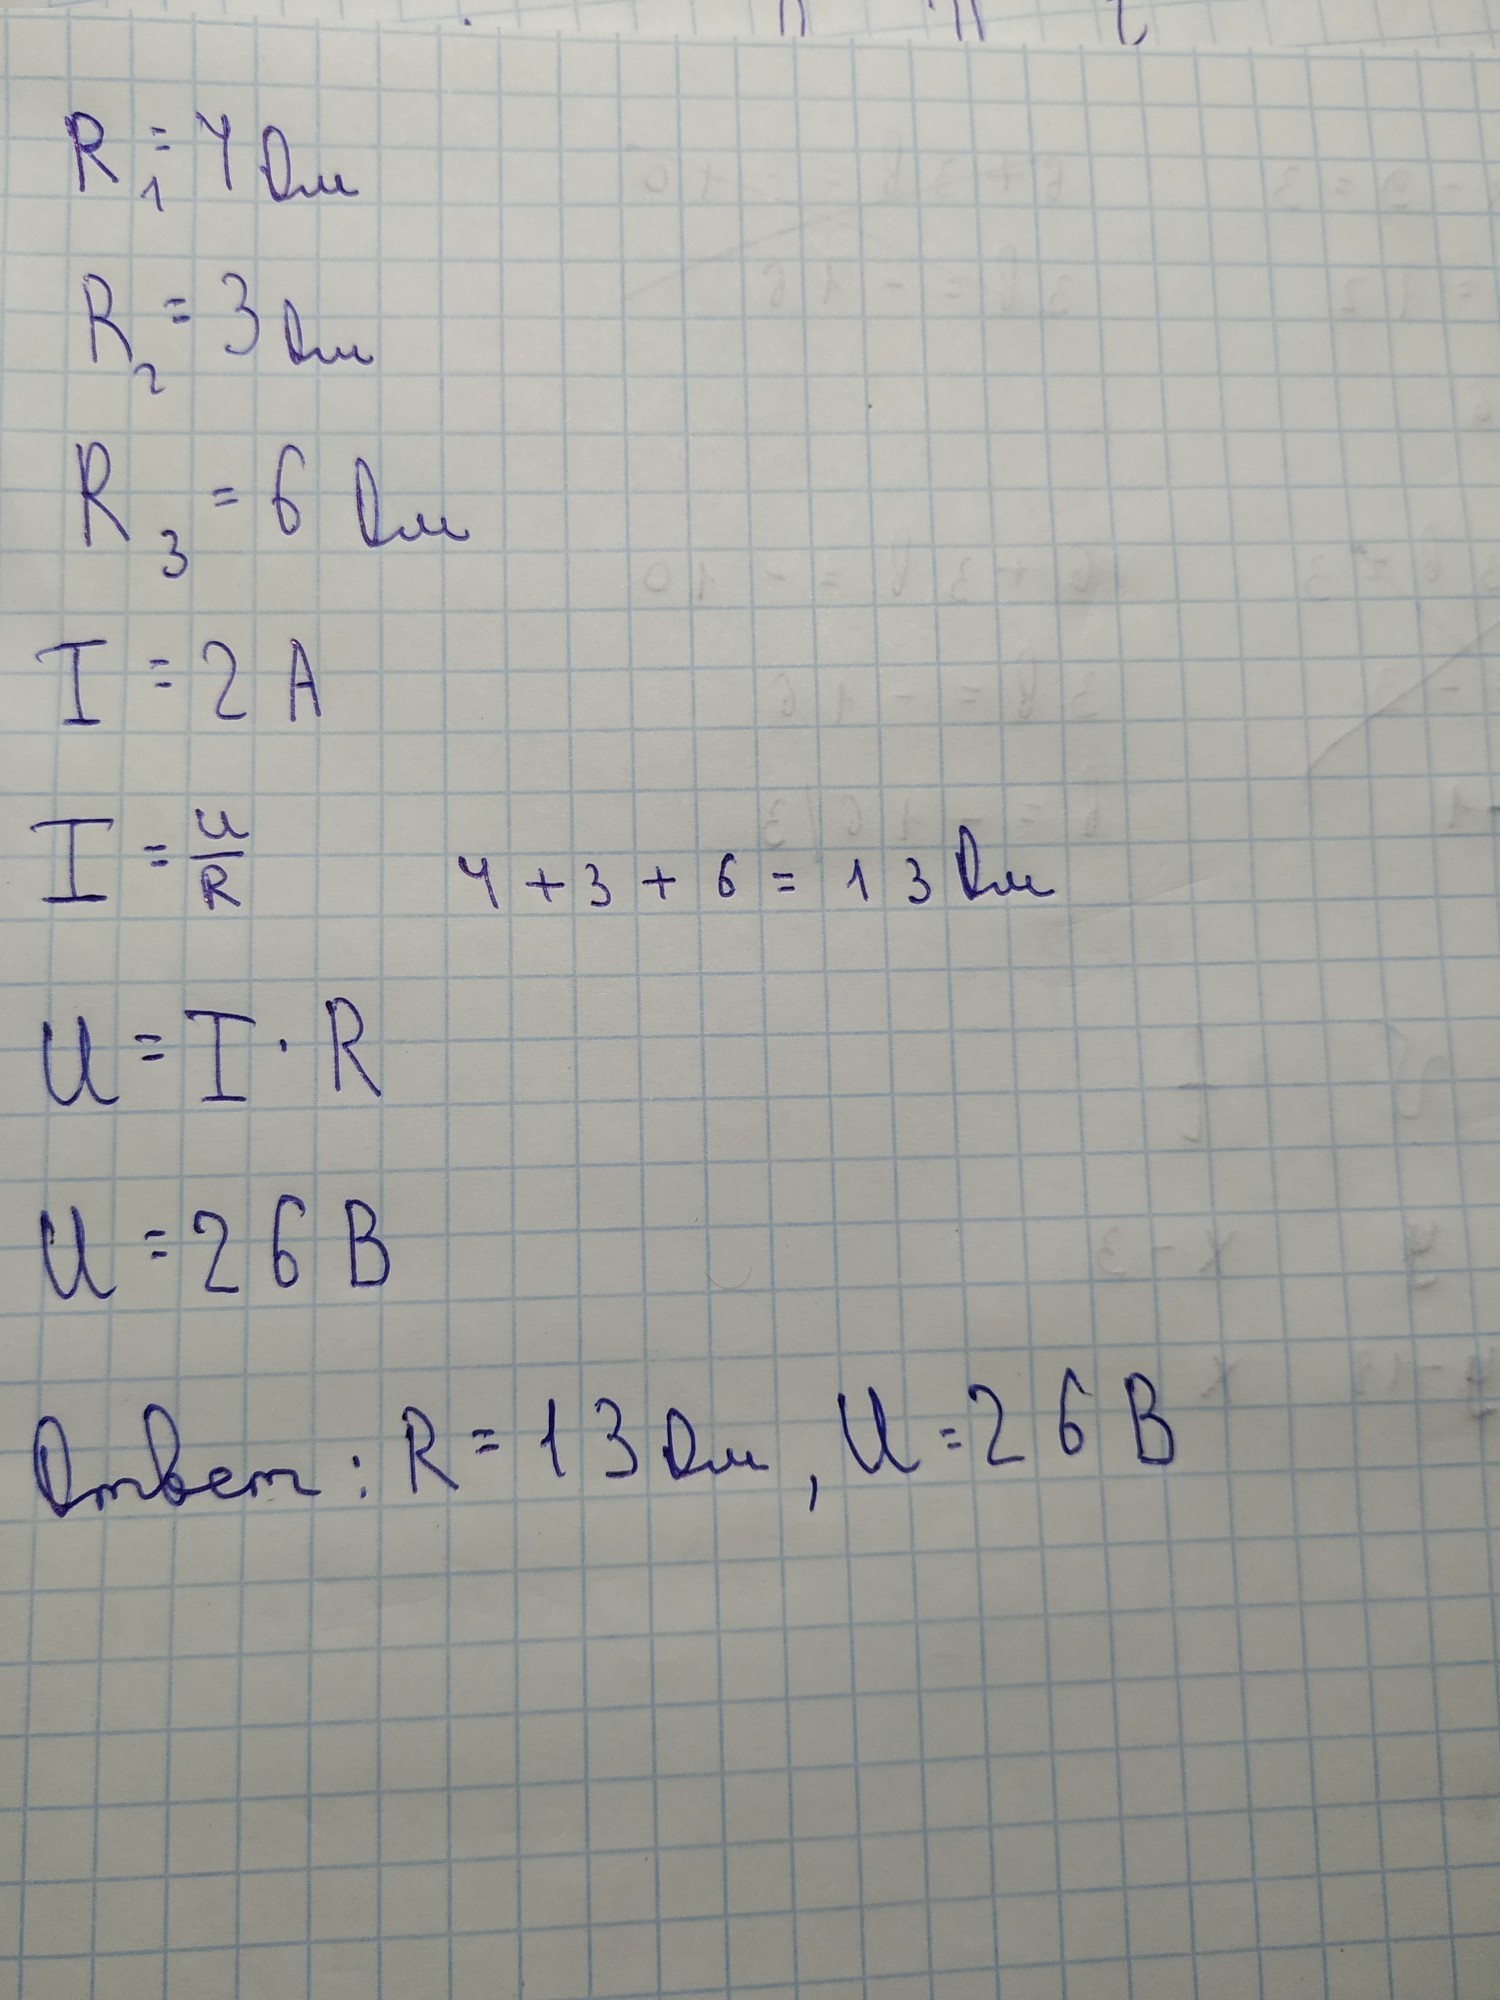 R₁ = 4 Ом
R₂ = 3 Ом
R₃ = 6 Ом
I = 2 А
I = U/R    4 + 3 + 6 = 13 Ом
U = I · R
U = 26 В
Ответ: R = 13 Ом, U = 26 В